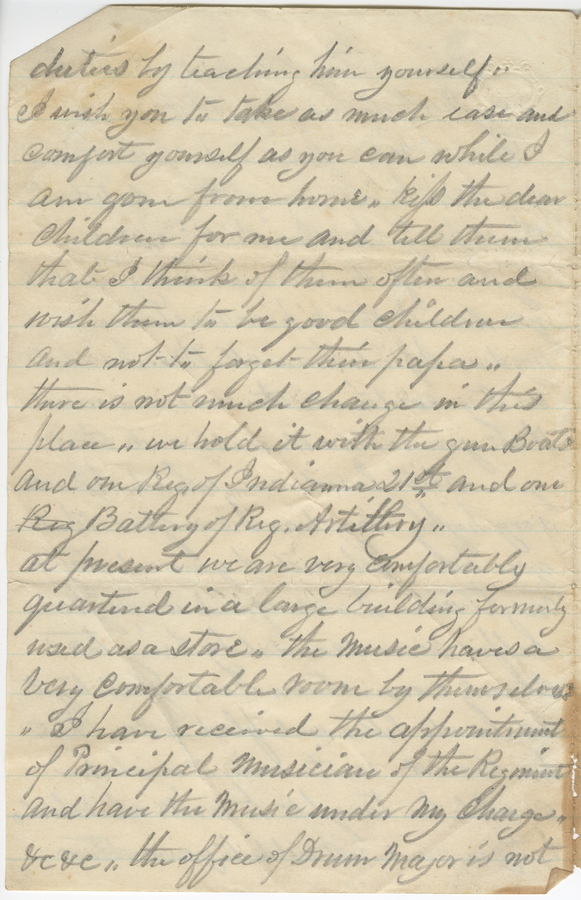 duties by teaching him yourself "
I wish you to take as much ease and
comfort yourself as you can while I
am gone from home " kiss the dear
Children for me and tell them
that I think of them often and
wish them to be good children
and not to forget their papa "
there is not much change in this
place " we hold it with the gun Boats
and one Reg of Indianna 21st and one
Reg Battery of Reg. Artillery "
at present we are very comfortably
quartered in a large building formerly
used as a store " the Music have a
very comfortable room by themselves
" I have received the appointment
of Principal Musician of the Regiment
and have the Music under my Charge "
&c &c " the office of Drum Major is not